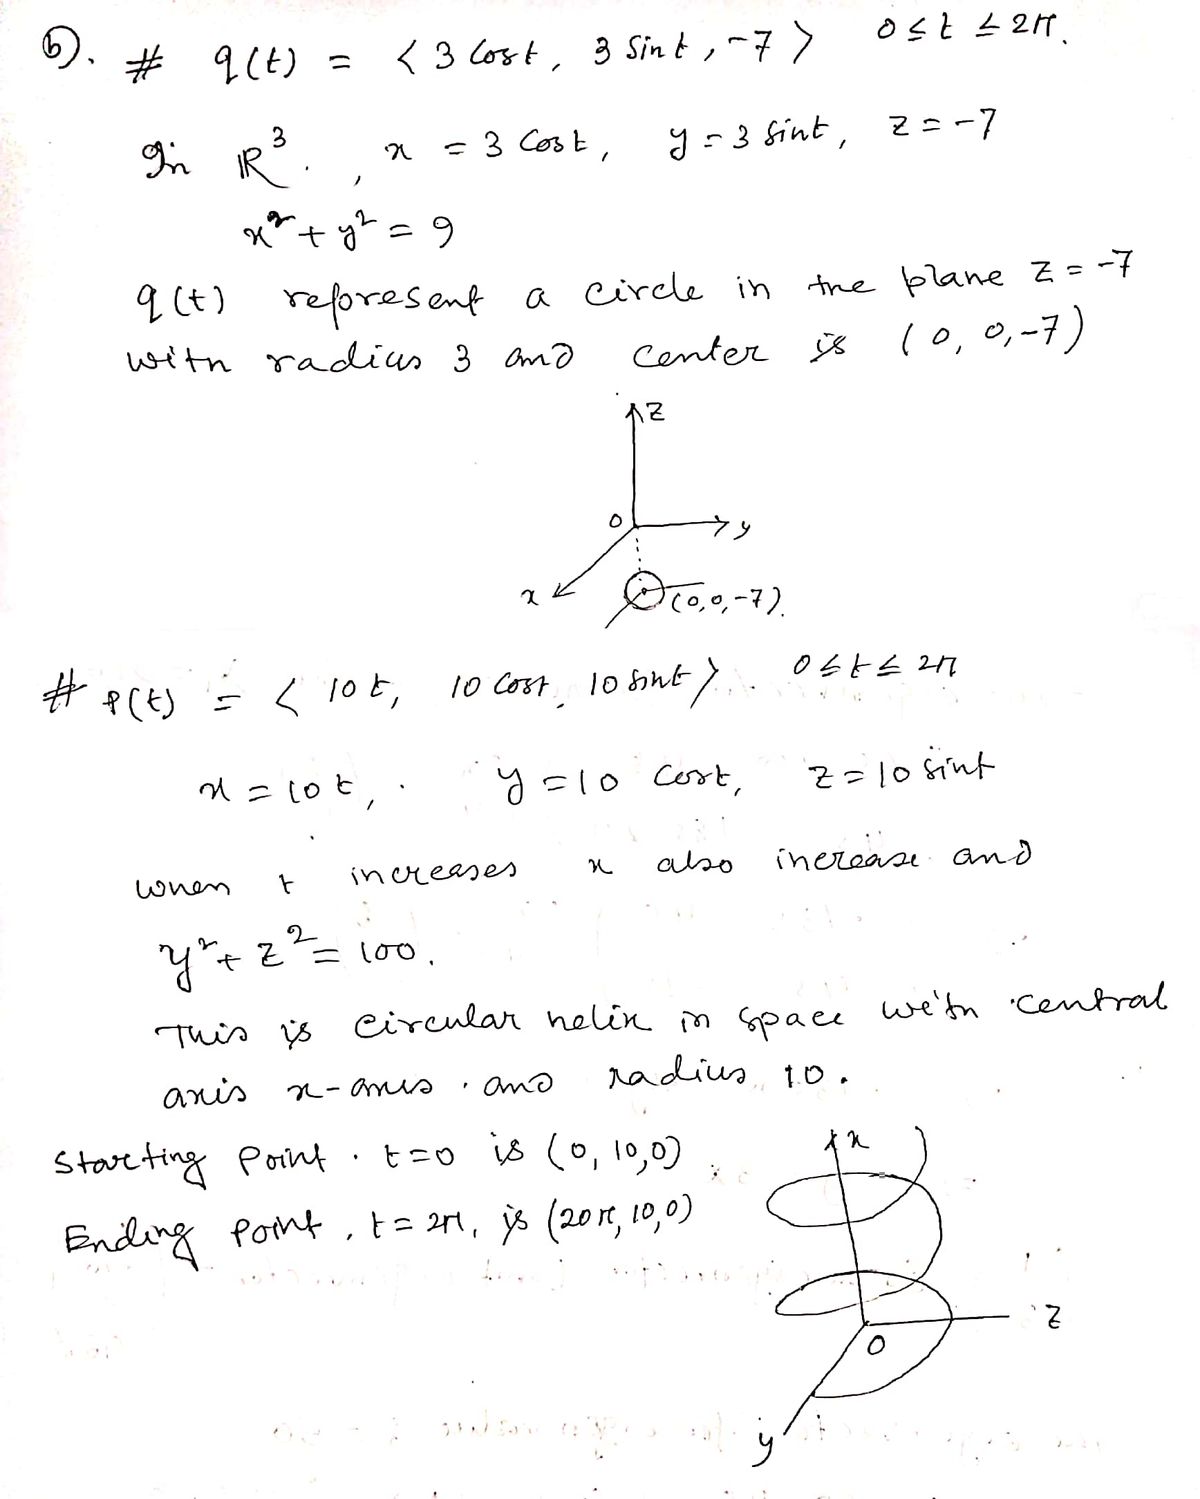 6). # q(t) = < 3 Cost, 3 Sint, -7 > 0 ≤ t ≤ 2π.
In ℝ³. , x = 3 Cost, y = 3 sint, z = -7
x² + y² = 9
q(t) represent a circle in the plane z = -7
with radius 3 and center is (0, 0, -7)
z
O
y
x
(0,0,-7).
# p(t) = < 10t, 10 Cost, 10 sint >. 0 ≤ t ≤ 2π
x = 10t, y = 10 Cost, z = 10 sint
when t increases x also increase and
y² + z² = 100.
This is circular helix in space with central
axis x-axis and radius 10.
Starting Point. t=0 is (0, 10, 0)
Ending Point, t = 2π, is (20π, 10, 0)
x
z
O
y